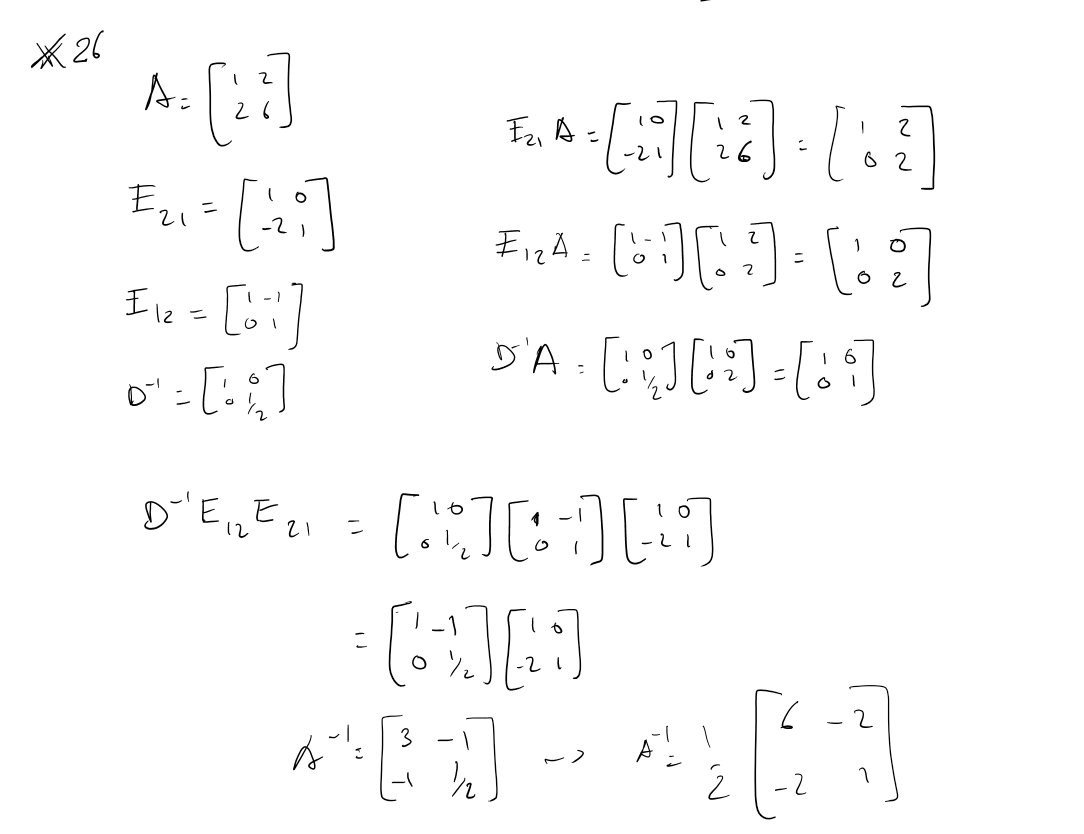 26
A = [1 2; 2 6]
E₂₁ = [1 0; -2 1]
E₁₂ = [1 -1; 0 1]
D⁻¹ = [1 0; 0 1/2]
E₂₁ A = [1 0; -2 1] [1 2; 2 6] = [1 2; 0 2]
E₁₂ A = [1 -1; 0 1] [1 2; 0 2] = [1 0; 0 2]
D⁻¹ A = [1 0; 0 1/2] [1 0; 0 2] = [1 0; 0 1]
D⁻¹ E₁₂ E₂₁ = [1 0; 0 1/2] [1 -1; 0 1] [1 0; -2 1]
= [1 -1; 0 1/2] [1 0; -2 1]
A⁻¹ = [3 -1; -1 1/2] → A⁻¹ = 1/2 [6 -2; -2 1]